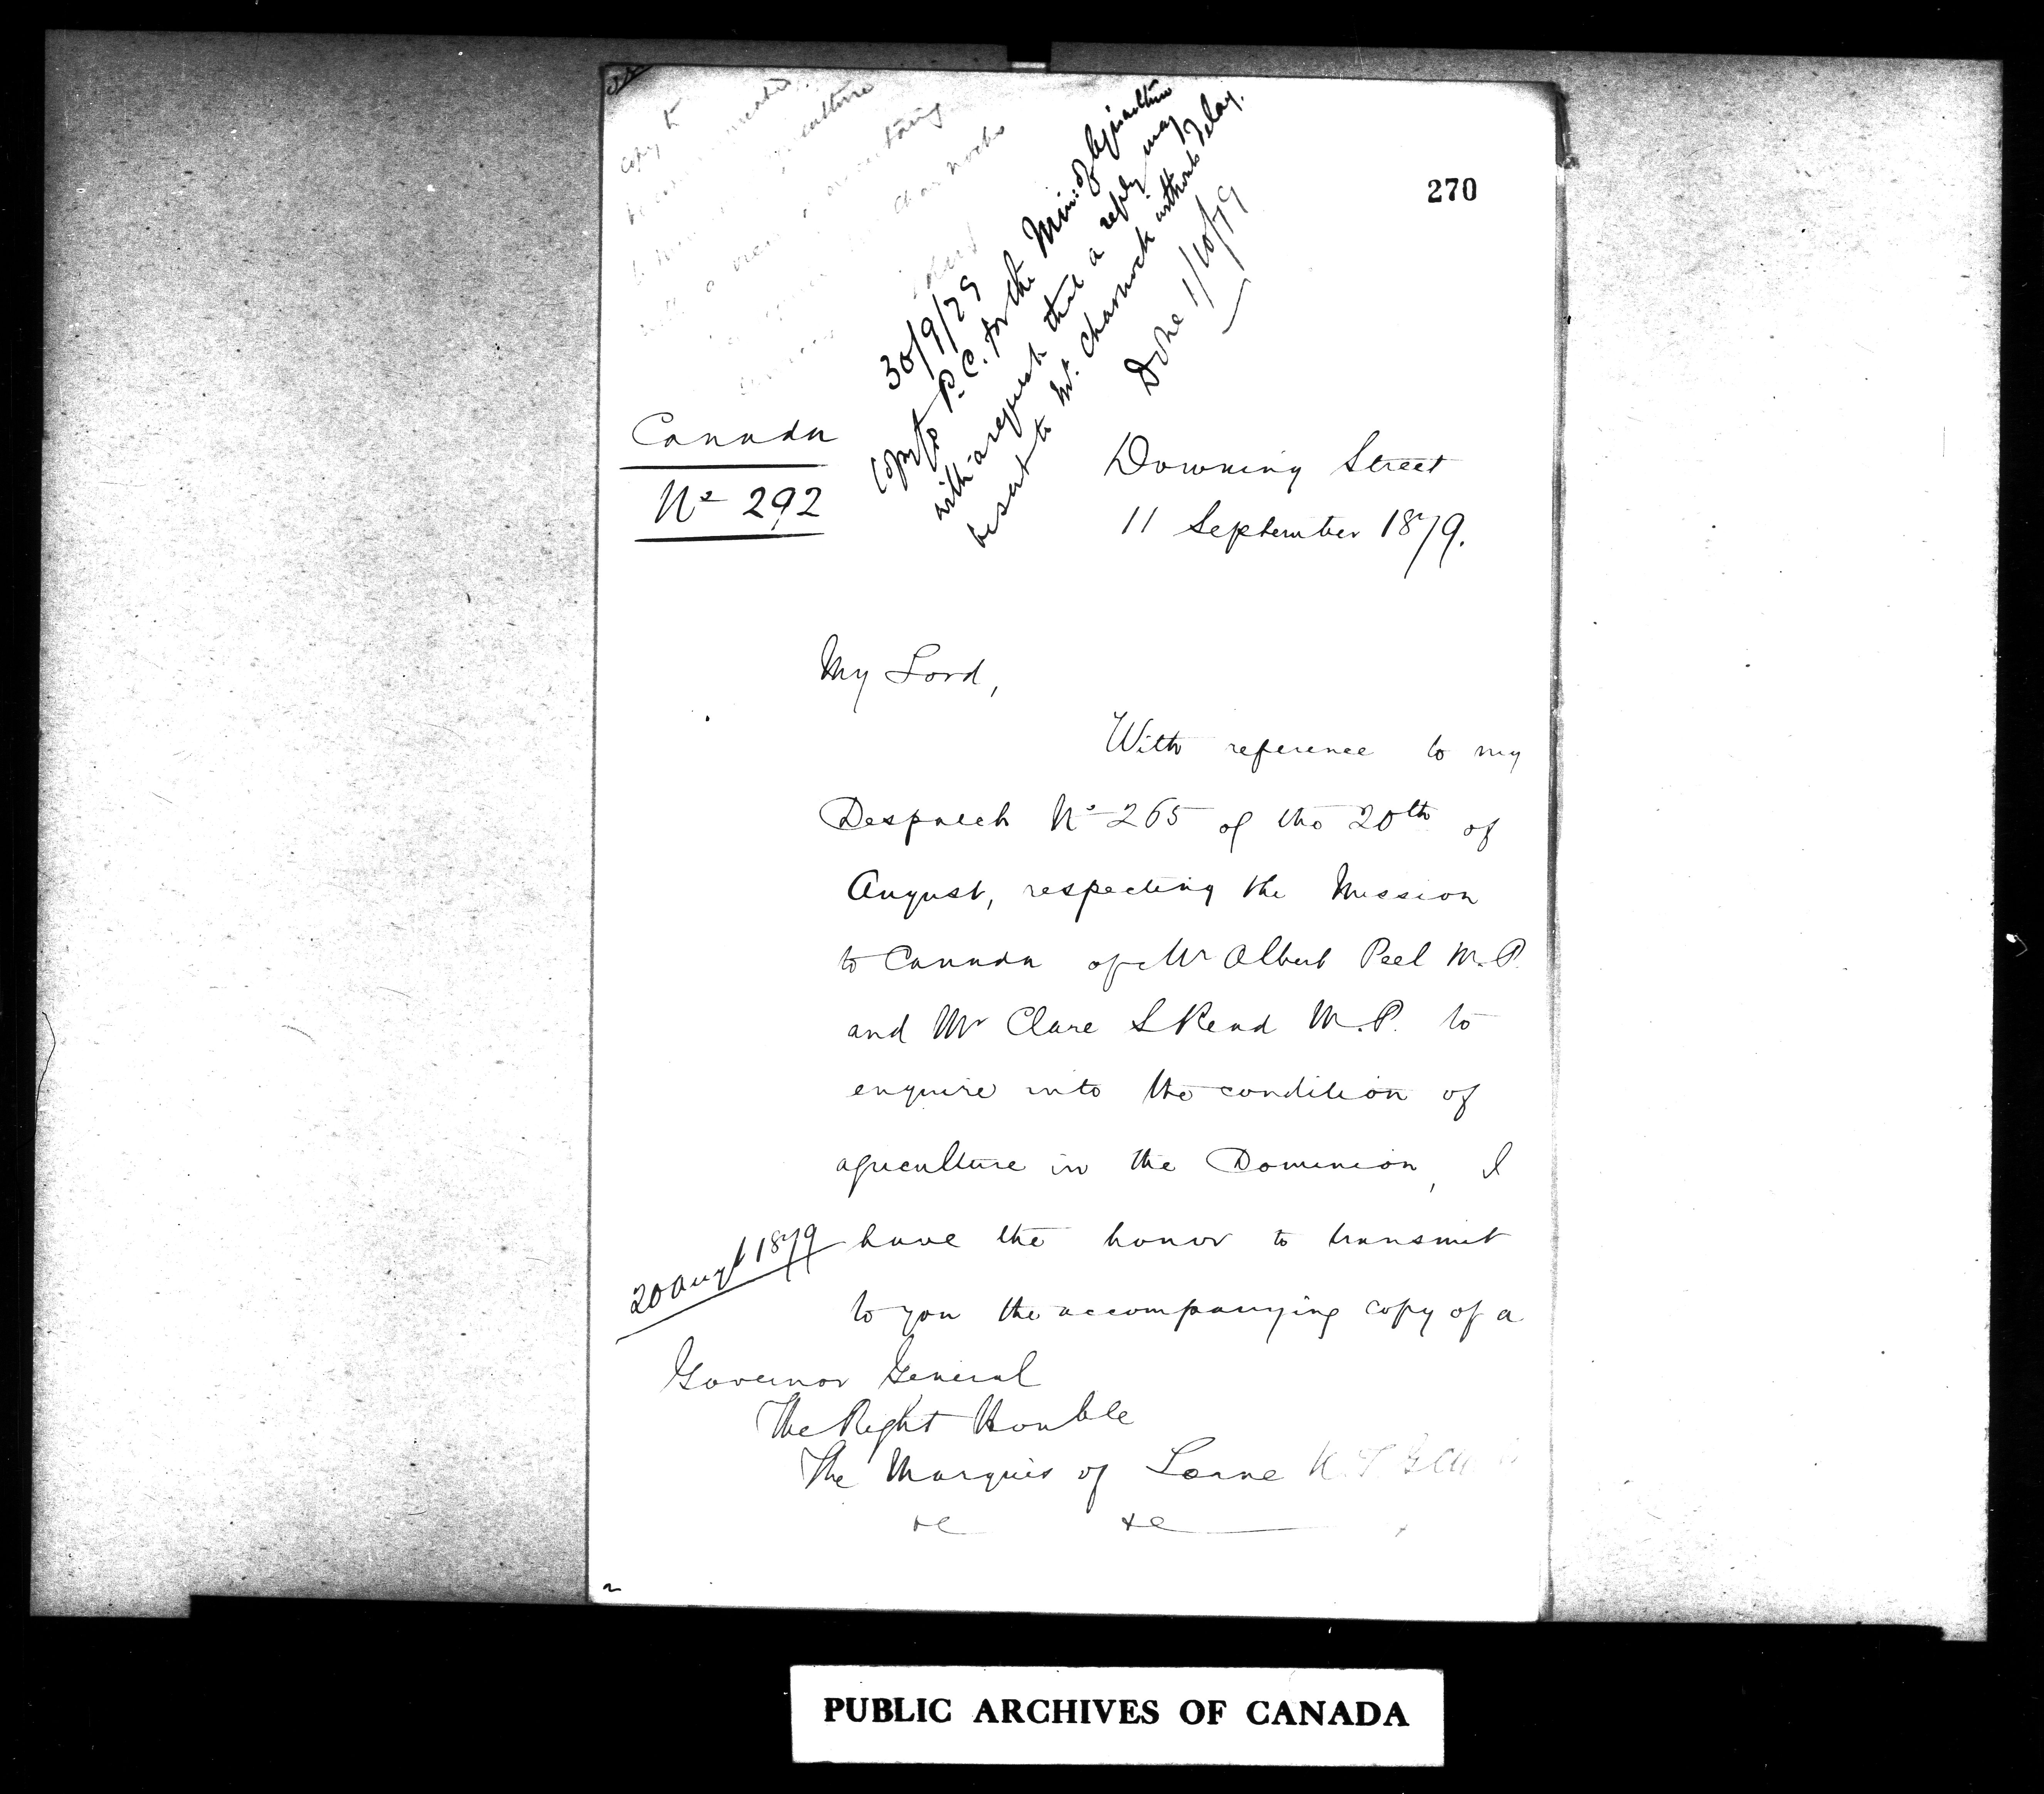 270
copy to
agriculture
Charnock
30/9/79
Copy to P.C. for the Min: of Agriculture
with a request that a reply may
be sent to Mr. Charnock without delay.
Done 1/10/79
Canada
No 292
Downing Street
11 September 1879.
My Lord,
With reference to my
Despatch No 265 of the 20th of
August, respecting the Mission
to Canada of Mr Albert Peel M.P.
and Mr Clare S Read M.P. to
enquire into the condition of
agriculture in the Dominion, I
20 Augt 1879
have the honor to transmit
to you the accompanying copy of a
Governor General
The Right Honble
The Marquis of Lorne K.T. GCM
&c &c
PUBLIC ARCHIVES OF CANADA